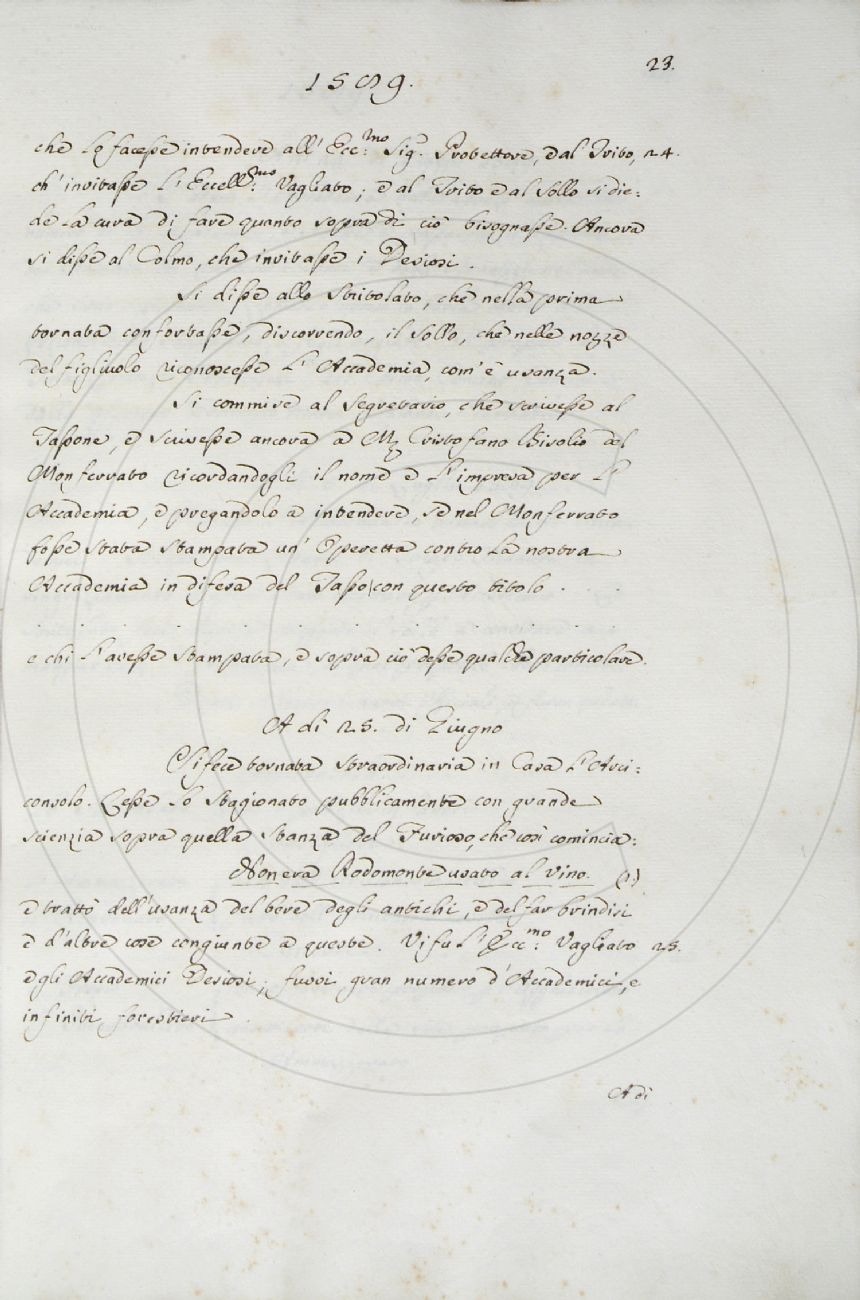 23.
1589.
che lo facesse intendere all' Ecc:mo Sig.r Protettore, e al Trito, 24.
ch' invitasse l' Eccell:mo Vagliato; e al Trito e al Sollo si die:
de la cura di fare quanto sopra di ciò bisognasse. Ancora
si disse al Colmo, che invitasse i Desiosi.
Si disse allo Stritolato, che nella prima
tornata confortasse, discorrendo, il Sollo, che nelle nozze
del figliuolo riconoscesse l' Accademia, com' è usanza.
Si commise al Segretario, che scrivesse al
Tassone, e scrivesse ancora a M. Cristofano del
Monferrato ricordandogli il nome e l' impresa per l'
Accademia, e pregandolo a intendere, se nel Monferrato
fosse stata stampata un' Operetta contro la nostra
Accademia in difesa del Tasso con questo titolo . . .
. . . . . . . . . .
e chi l' avesse stampata, e sopra ciò desse qualche particolare.
A dì 25. di Giugno
Si fece tornata straordinaria in Casa l' Arci:
consolo. Lesse lo Stagionato pubblicamente con grande
scienzia sopra quella stanza del Furioso, che così comincia:
Non era Rodomonte usato al vino. (1)
e trattò dell' usanza del bere degli antichi, e del far brindisi
e d' altre cose congiunte a queste. Vi fu l' Ecc:mo Vagliato 25.
e gli Accademici Desiosi; fuvvi gran numero d' Accademici, e
infiniti forestieri.
A dì